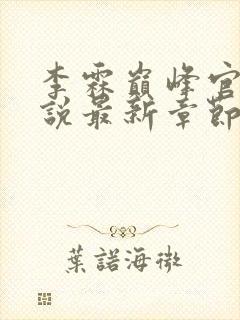 李霖巔峰官
說最新章節
葉諾海微